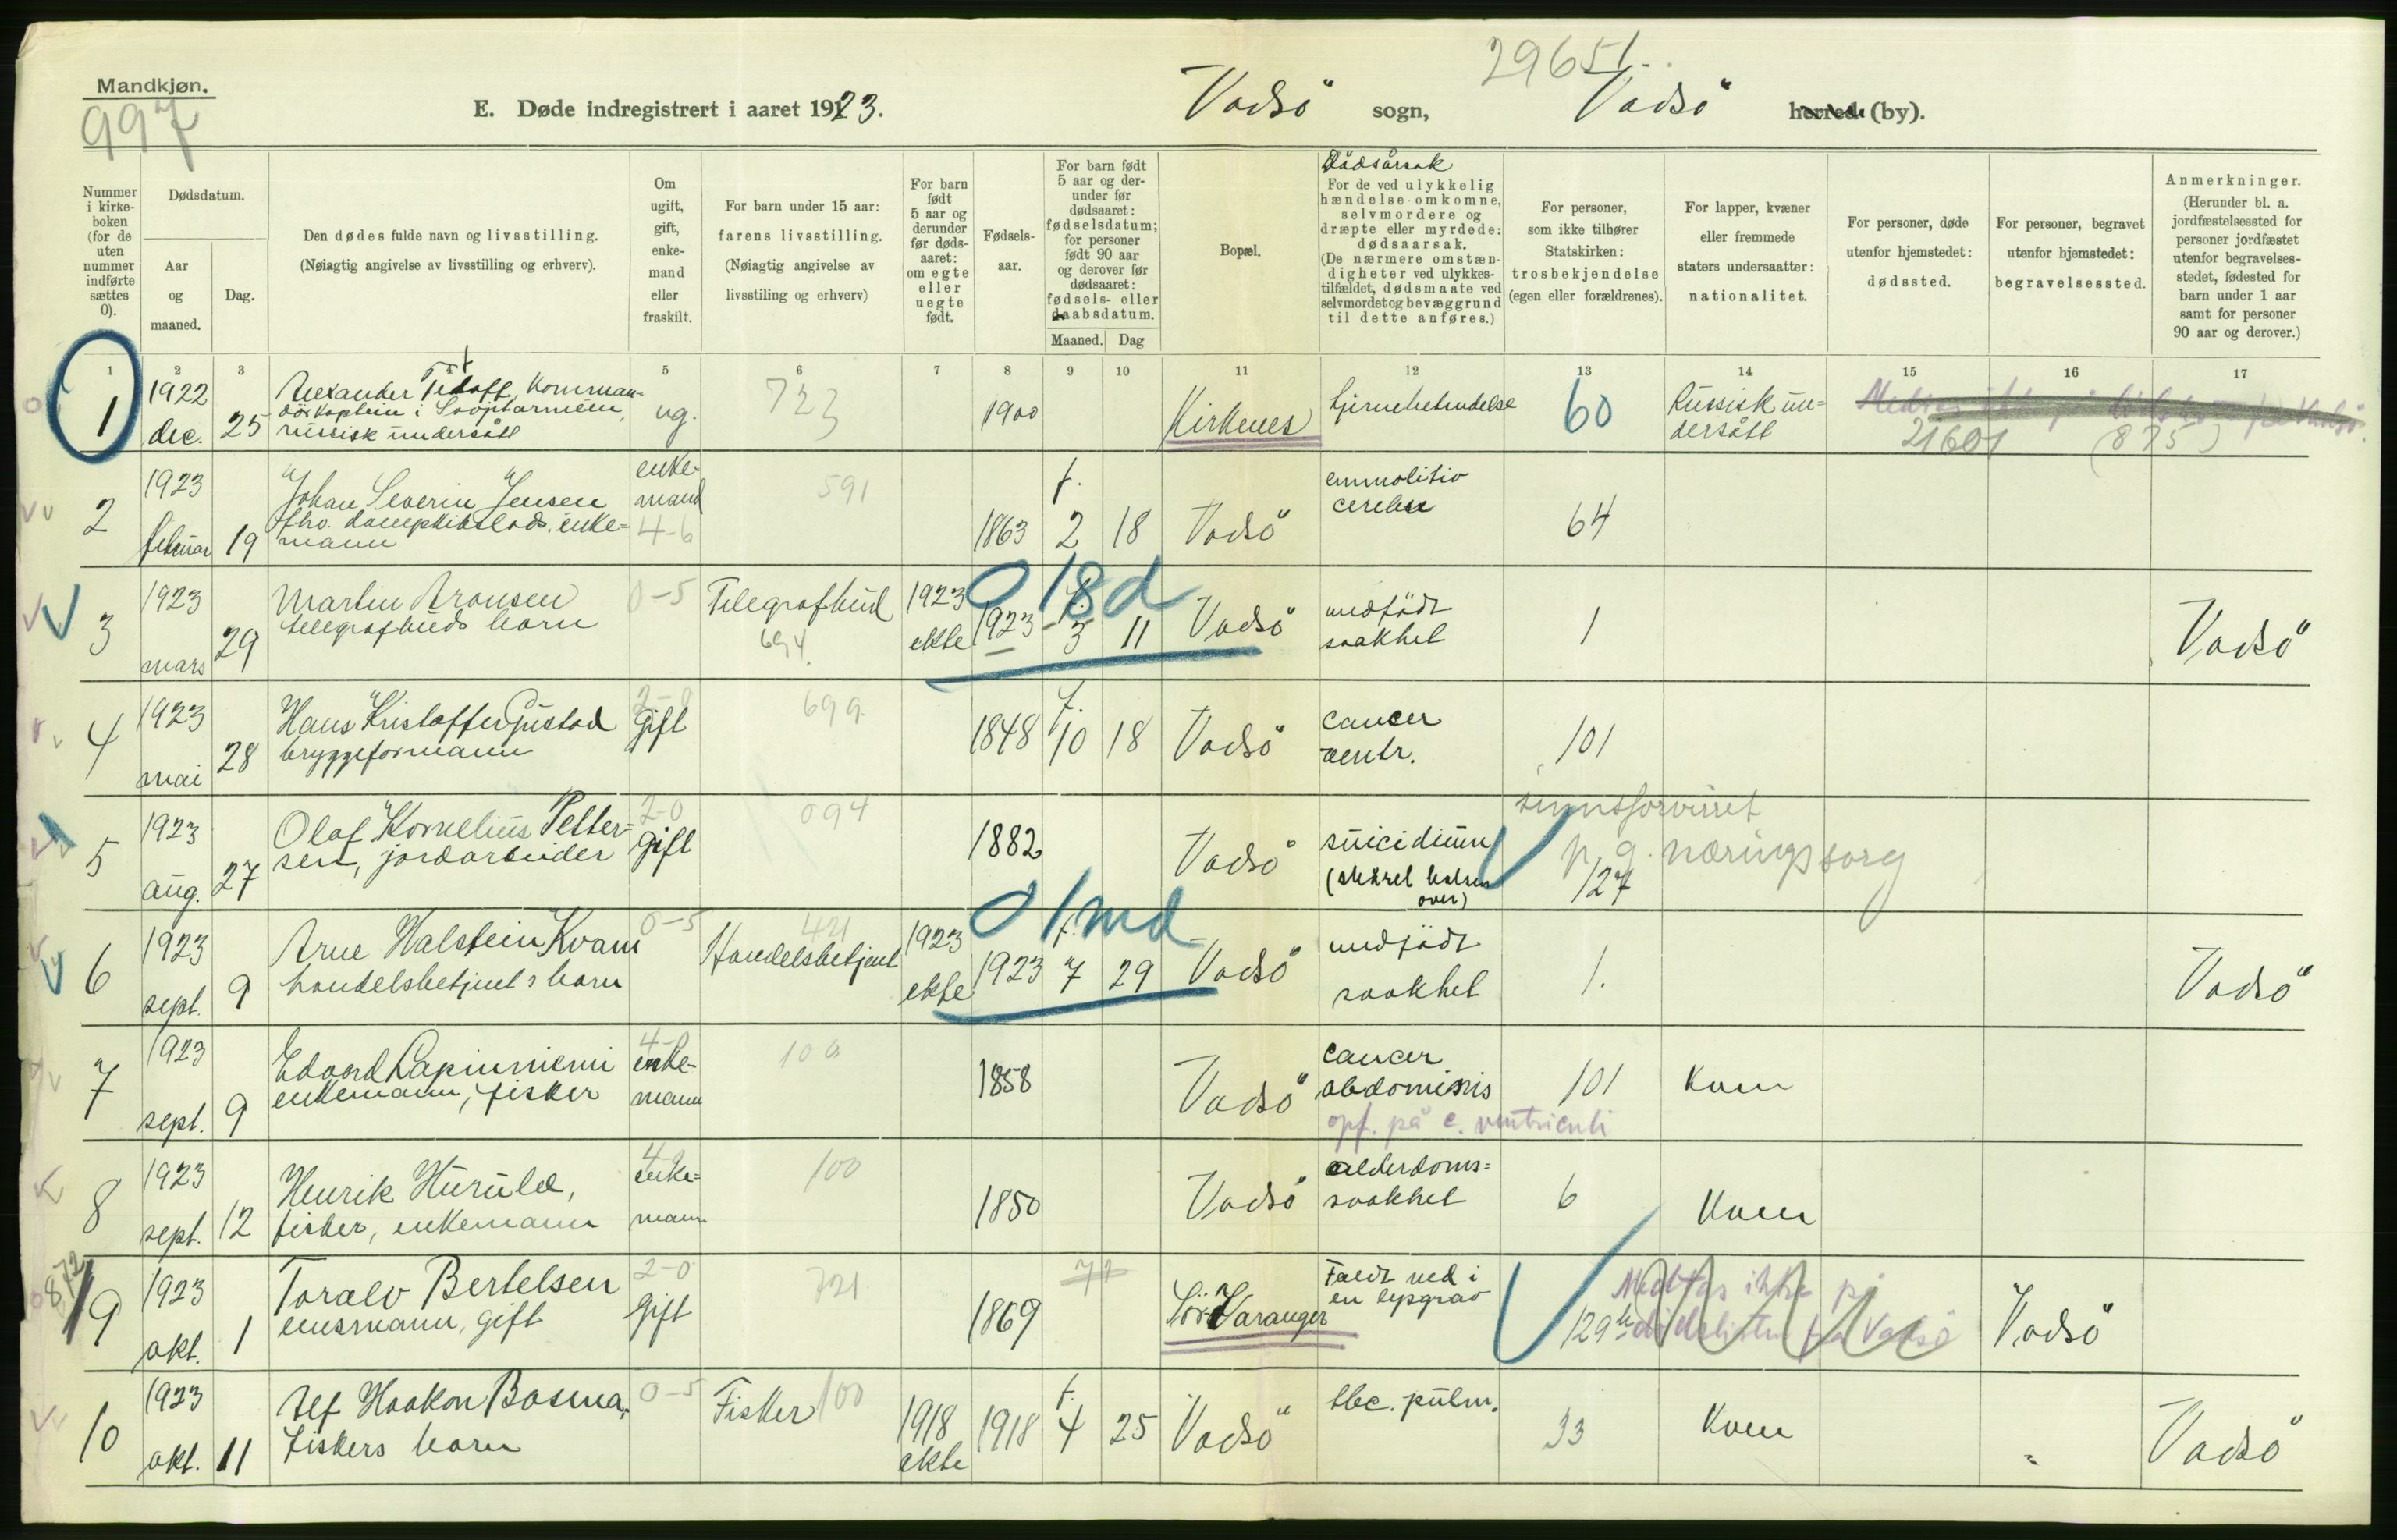 29651.
Mandkjøn.
997
E. Døde indregistrert i aaret 1923.
Vadsö sogn,
Vadsö herred (by).
Nummer i kirkeboken (for de uten nummer indførte sættes 0).
Dødsdatum.
Aar og maaned.
Dag.
Den dødes fulde navn og livsstilling.
(Nøiagtig angivelse av livsstilling og erhverv).
Om ugift, gift, enkemand eller fraskilt.
For barn under 15 aar: farens livsstilling.
(Nøiagtig angivelse av livsstiling og erhverv)
For barn født 5 aar og derunder før dødsaaret: om egte eller uegte født.
Fødselsaar.
For barn født 5 aar og derunder før dødsaaret: fødselsdatum; for personer født 90 aar og derover før dødsaaret: fødsels- eller daabsdatum.
Maaned. Dag
Bopæl.
Dödsårsak
For de ved ulykkelig hændelse omkomne, selvmordere og dræpte eller myrdede: dødsaarsak.
(De nærmere omstændigheter ved ulykkestilfældet, dødsmaate ved selvmordet og bevæggrund til dette anføres.)
For personer, som ikke tilhører Statskirken: trosbekjendelse (egen eller forældrenes).
For lapper, kvæner eller fremmede staters undersaatter: nationalitet.
For personer, døde utenfor hjemstedet: dødssted.
For personer, begravet utenfor hjemstedet: begravelsessted.
Anmerkninger.
(Herunder bl. a. jordfæstelsessted for personer jordfæstet utenfor begravelsesstedet, fødested for barn under 1 aar samt for personer 90 aar og derover.)
1 2 3 5 6 7 8 9 10 11 12 13 14 15 16 17
1 1922 dec. 25 Alexander kommandörkaptein i Sovjetarmeen, russisk undersått ug. 723 1900 Kirkenes hjernebetendelse 60 Russisk undersått 21601 (875)
2 1923 februar 19 Johan Severin Jensen fhv. dampskibslods. enkemann enkemand 4-6 591 1863 f. 2 18 Vadsö emmolitio cerebri 64
3 1923 mars 29 Martin Aronsen telegrafbuds barn 0-5 Telegrafbud 694. 1923 ekte 1923 3 11 0 18 d Vadsö medfödt svakhet 1 Vadsö
4 1923 mai 28 Hans Kristoffer Gustad bryggeformann 2-0 gift 699 1848 f. 10 18 Vadsö cancer ventr. 101
5 1923 aug. 27 Olaf Kornelius Pettersen, jordarbeider 2-0 gift 094 1882 Vadsö suicidium (skåret halsen over) sinnsforvirret p. g. næringssorg 127
6 1923 sept. 9 Arne Halstein Kvam handelsbetjent's barn 0-5 Handelsbetjent 421 1923 ekte 1923 f. 7 29 0 1 md Vadsö medfödt svakhet 1. Vadsö
7 1923 sept. 9 Edvard Lapinniemi enkemann, fisker 4- enkemann 100 1858 Vadsö cancer abdominis opf. på c. ventriculi 101 Kven
8 1923 sept. 12 Henrik Hurula, fisker, enkemann enkemann 100 1850 Vadsö alderdomssvakhet 6 Kven
872 9 1923 okt. 1 Toralv Bertelsen lensmann, gift 2-0 gift 721 1869 77 Sör-Varanger Faldt ned i en lysgrav 129 Medtas ikke på dödelisten fra Vadsö Vadsö
10 1923 okt. 11 Alf Haakon Basma, fiskers barn 0-5 Fisker 100 1918 ekte 1918 f. 4 25 Vadsö tbc. pulm. 33 Kven " Vadsö